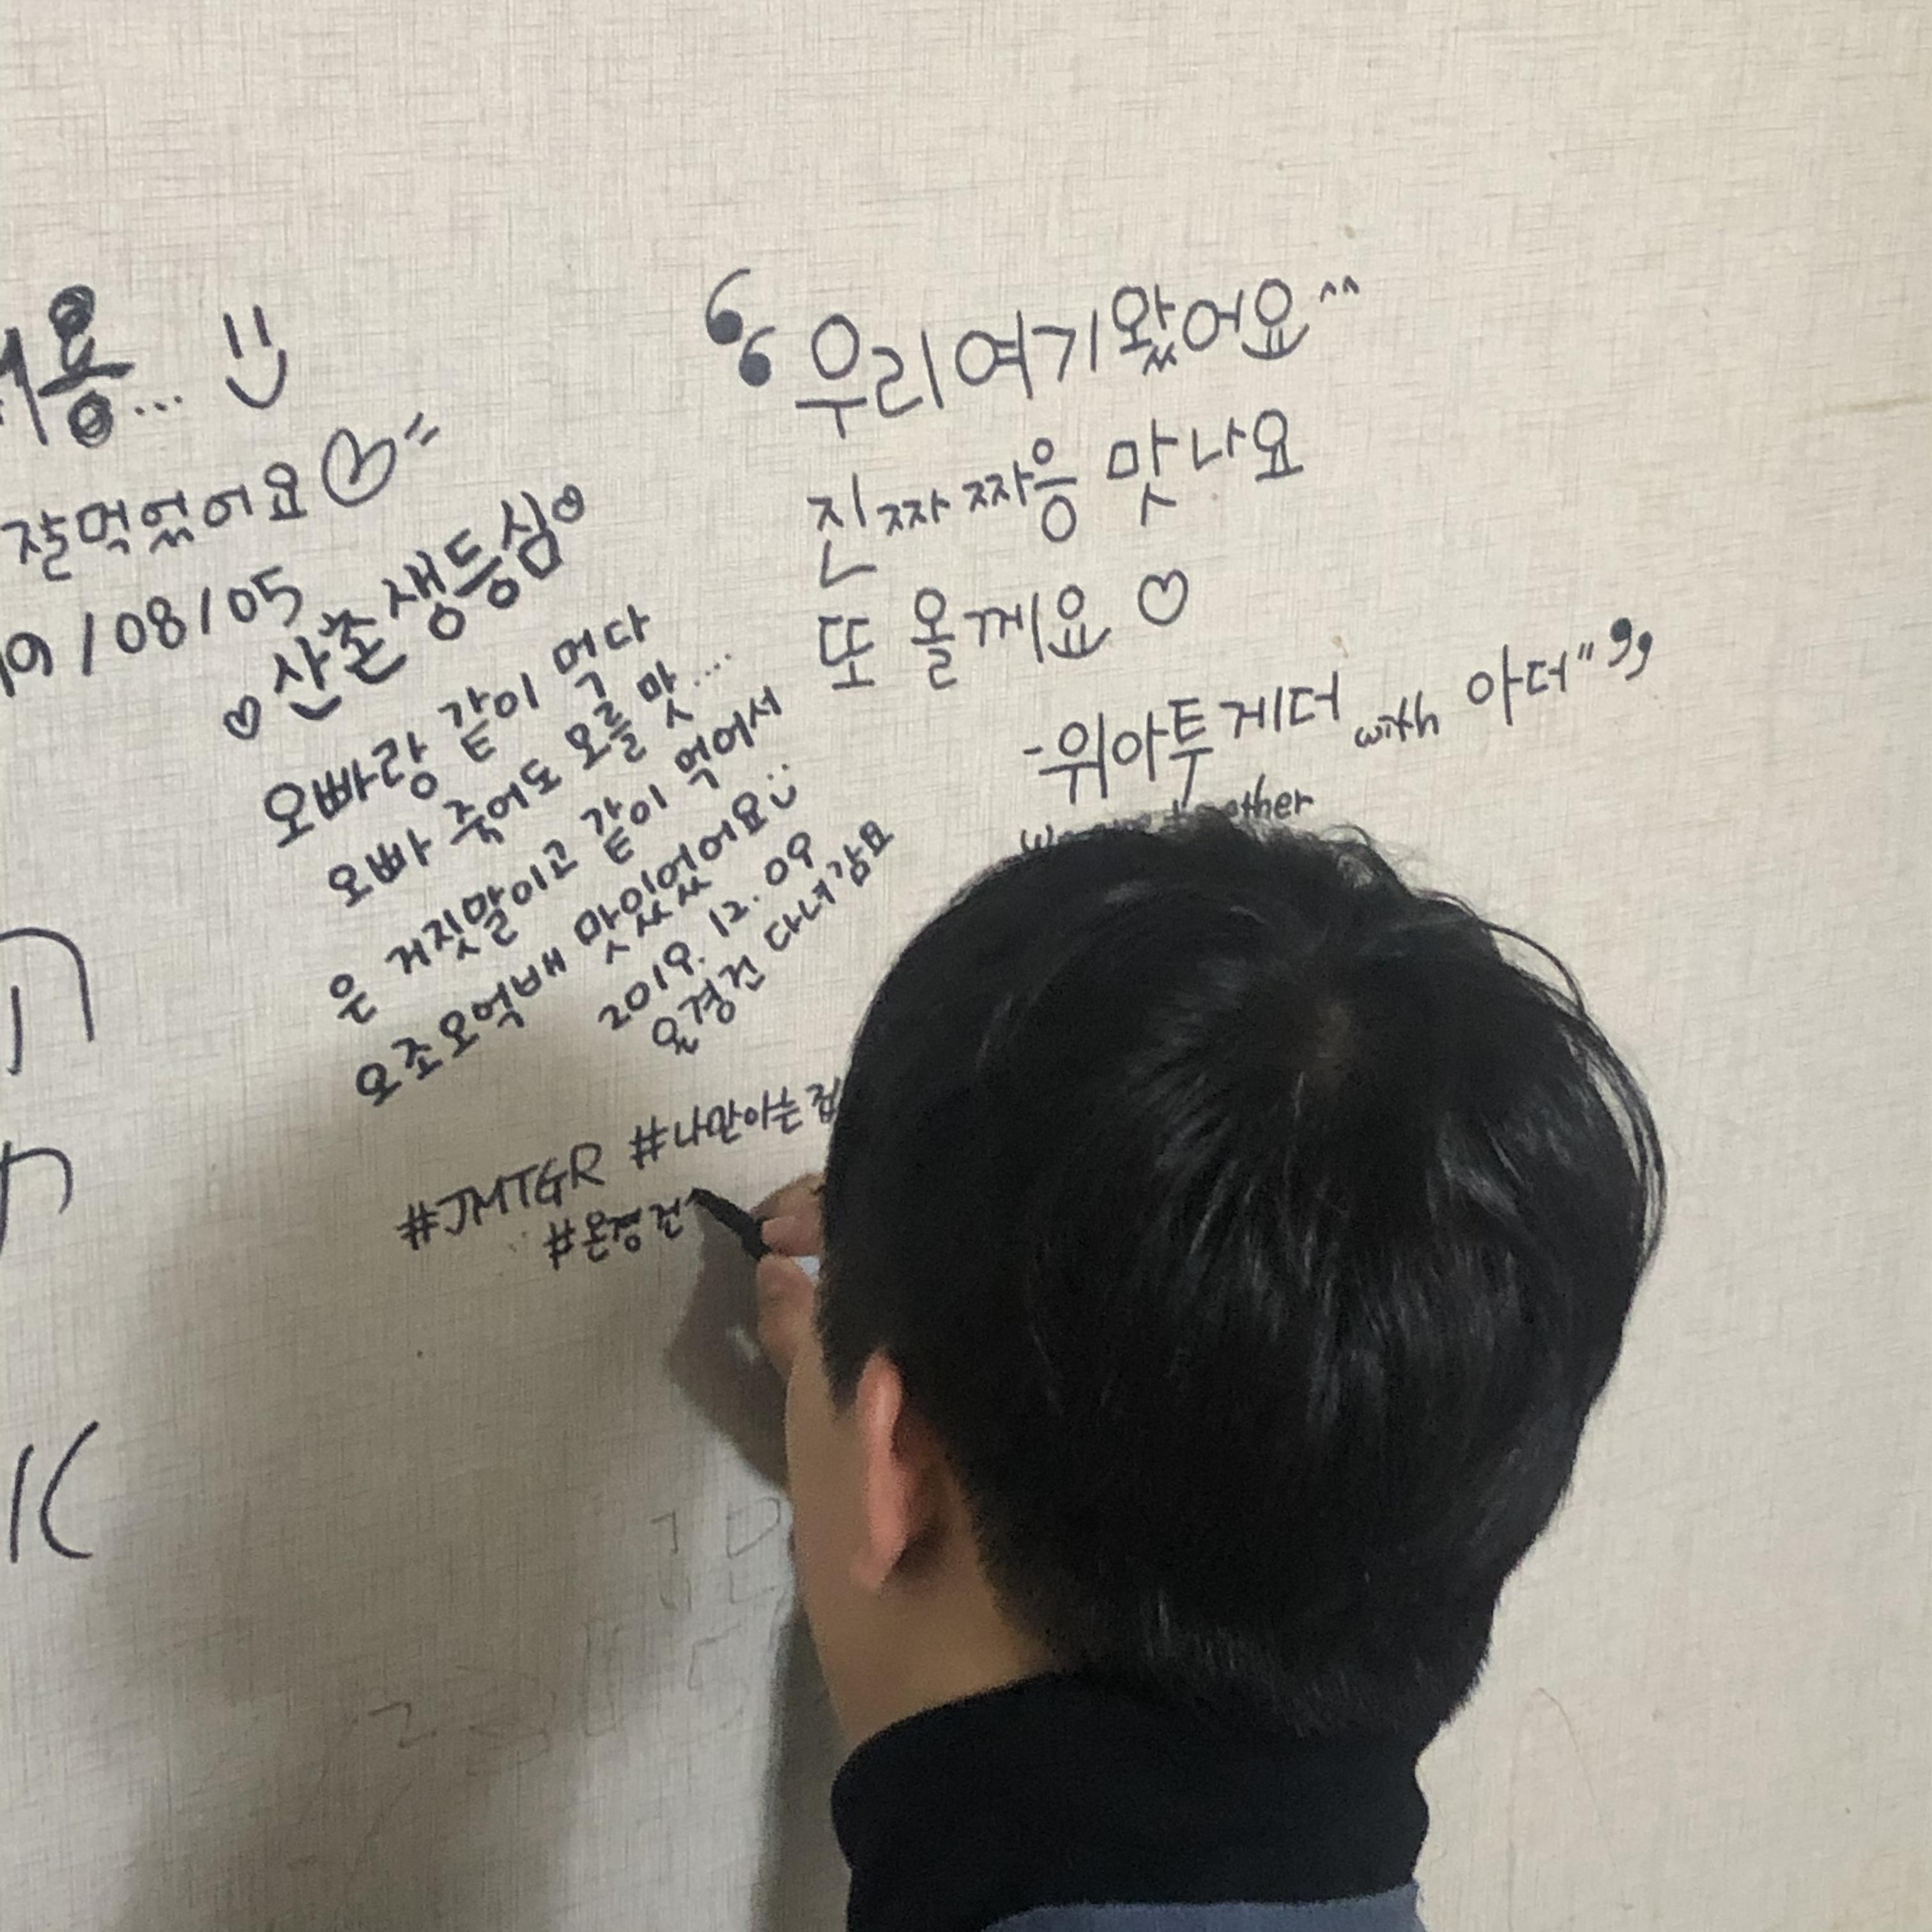 잘먹었어요♡
/08/05
♡산촌생등심♡
오빠랑 같이 먹다
오빠 죽어도 모를 맛....
은 거짓말이고 같이 먹어서
오조오억배 맛있었어요
2019. 12. 09
윤경건 다녀감요
#JMTGR #나만아는
#윤경건
“우리여기왔어요^^
진짜짜응 맛나요
또 올께요 ♡
-위아투게더 with 아더"”